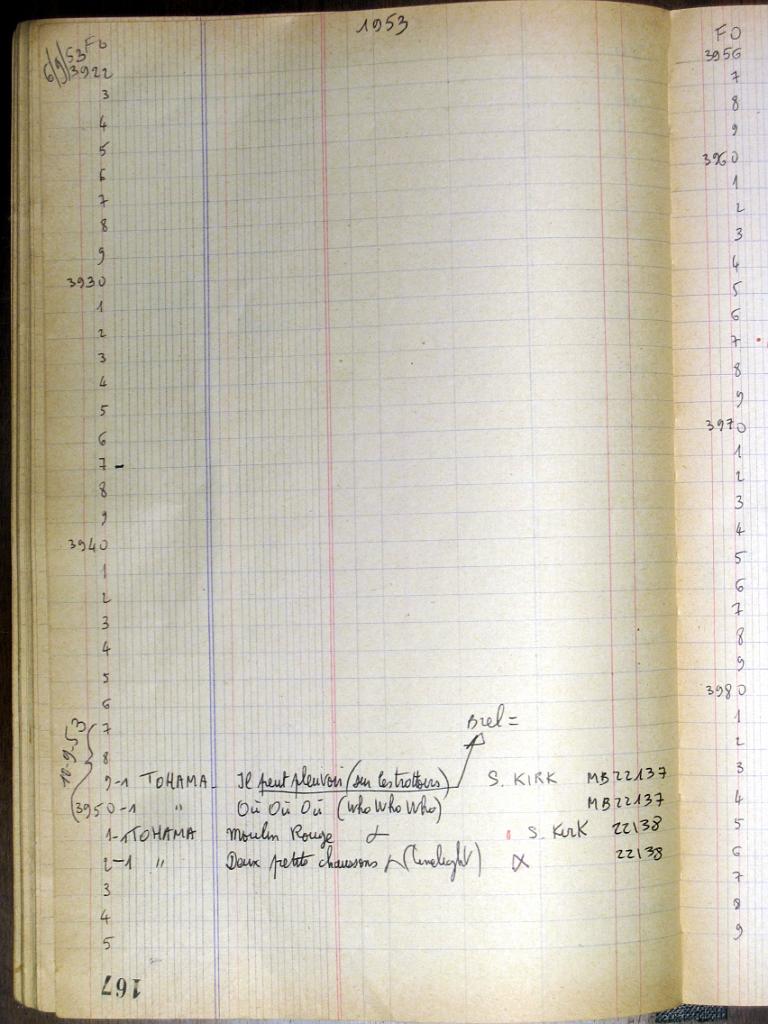 1953
Fo
6/9/53 3922
3
4
5
6
7
8
9
3930
1
2
3
4
5
6
7 -
8
9
3940
1
2
3
4
5
6
10-9-53 7
Brel =
8
9-1 TOHAMA Il peut pleuvoir (sur les trottoirs) S. KIRK MB 22137
3950-1 " Où Où Où (Who Who Who) MB 22137
1-1 TOHAMA Moulin Rouge S. Kirk 22138
2-1 " Deux petits chaussons (Limelight) 22138
3
4
5
167
FO
3956
7
8
9
3960
1
2
3
4
5
6
7
8
9
3970
1
2
3
4
5
6
7
8
9
3980
1
2
3
4
5
6
7
8
9